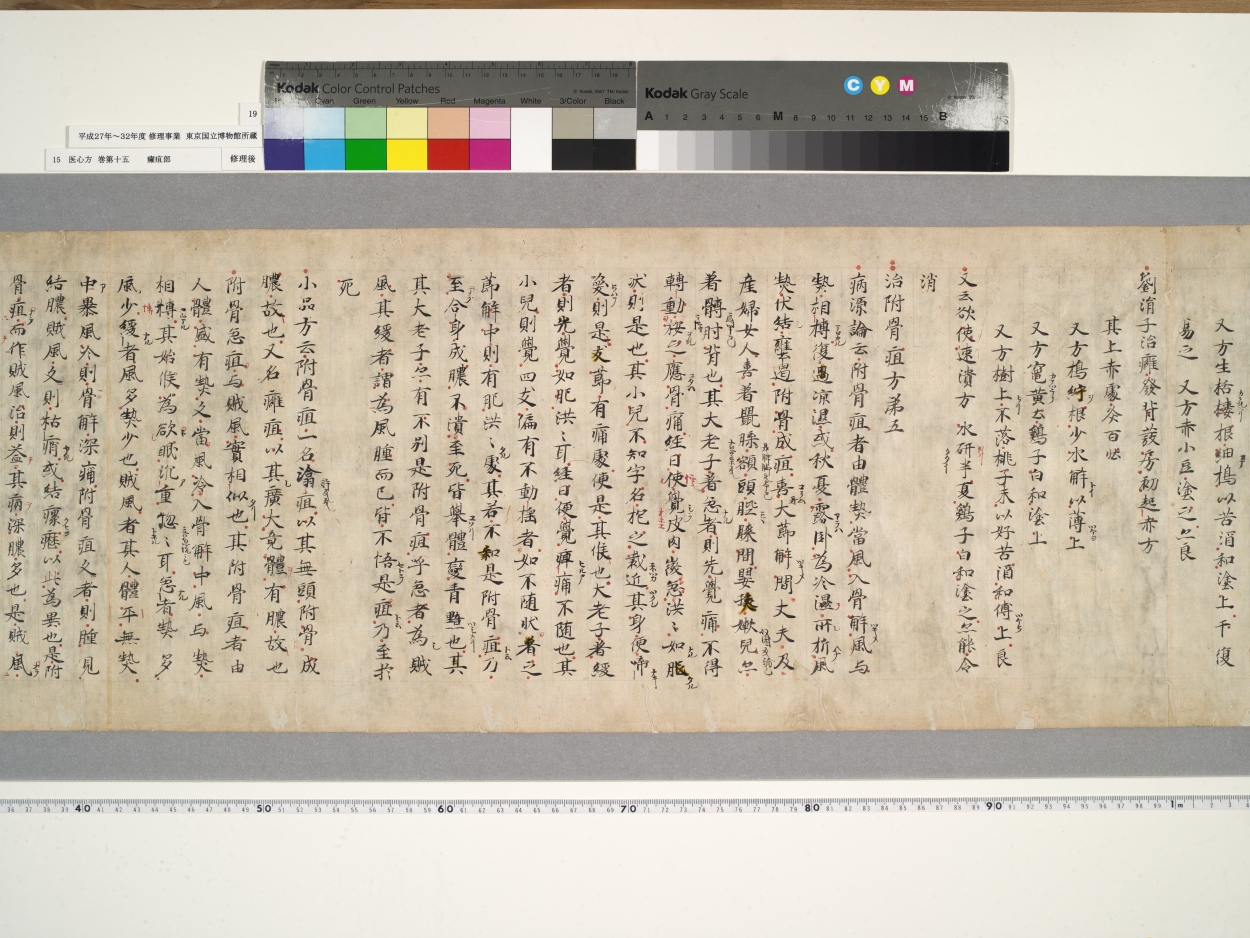 Kodak Color Control Patches
Cyan Green Yellow Red Magenta White 3/Color Black
Kodak Gray Scale
C Y M
A 1 2 3 4 5 6 M 8 9 10 11 12 13 14 15 B
19
平成27年〜32年度 修理事業 東京国立博物館所蔵
15 医心方 巻第十五 癰疽部 修理後
又方生栝樓根細搗以苦酒和塗上干復
易之 又方赤小豆塗之亦良
劉涓子治癰發背發房初起赤方
其上赤處灸百壯
又方搗苧根少水解以薄上
又方竈黄土鷄子白和塗上
又方樹上不落桃子末以好苦酒和傅上良
又云欲使速潰方 水研半夏鷄子白和塗之亦能令
消
治附骨疽方第五
病源論云附骨疽者由體熱當風入骨解風与
熱相搏復遇凉濕或秋夏露卧為冷濕所折風
熱伏結壅遏附骨成疽喜大莭解間丈夫及
産婦女人喜著鼠膝髂頭䏶膝間嬰孩嫩兒亦
著髆肘背也其大老子著急者則先覺痛不得
轉動按之應骨痛經日便覺皮肉微急洪々如肥
状則是也其小兒不知字名抱之裁近其身便啼
喚則是支莭有痛處便是其候也大老子著緩
者則先覺如肥洪々耳經日便覺痺痛不随也其
小兒則覺四支偏有不動揺者如不随状著之
莭解中則有肥洪々處其若不知是附骨疽乃
至合身成膿不潰至死皆舉體變青黯也其
其大老子亦有不別是附骨疽呼急者為賊
風其緩者謂為風腫而已皆不悟是疽乃至於
死
小品方云附骨疽一名瀹疽以其無頭附骨成
膿故也又名癰疽以其廣大竟體有膿故也
附骨急疽与賊風實相似也其附骨疽者由
人體盛有熱久當風冷入骨解中風与熱
相搏其始候為欲眠沉重惚々耳急者熱多
風少緩者風多熱少也賊風者其人體平無熱
中暴風冷則骨解深痛附骨疽久者則腫見
結膿賊風久則枯痟或結瘰癧以此為異也是附
骨疽而作賊風治則益其病深膿多也是賊風
40 50 60 70 80 90 1m